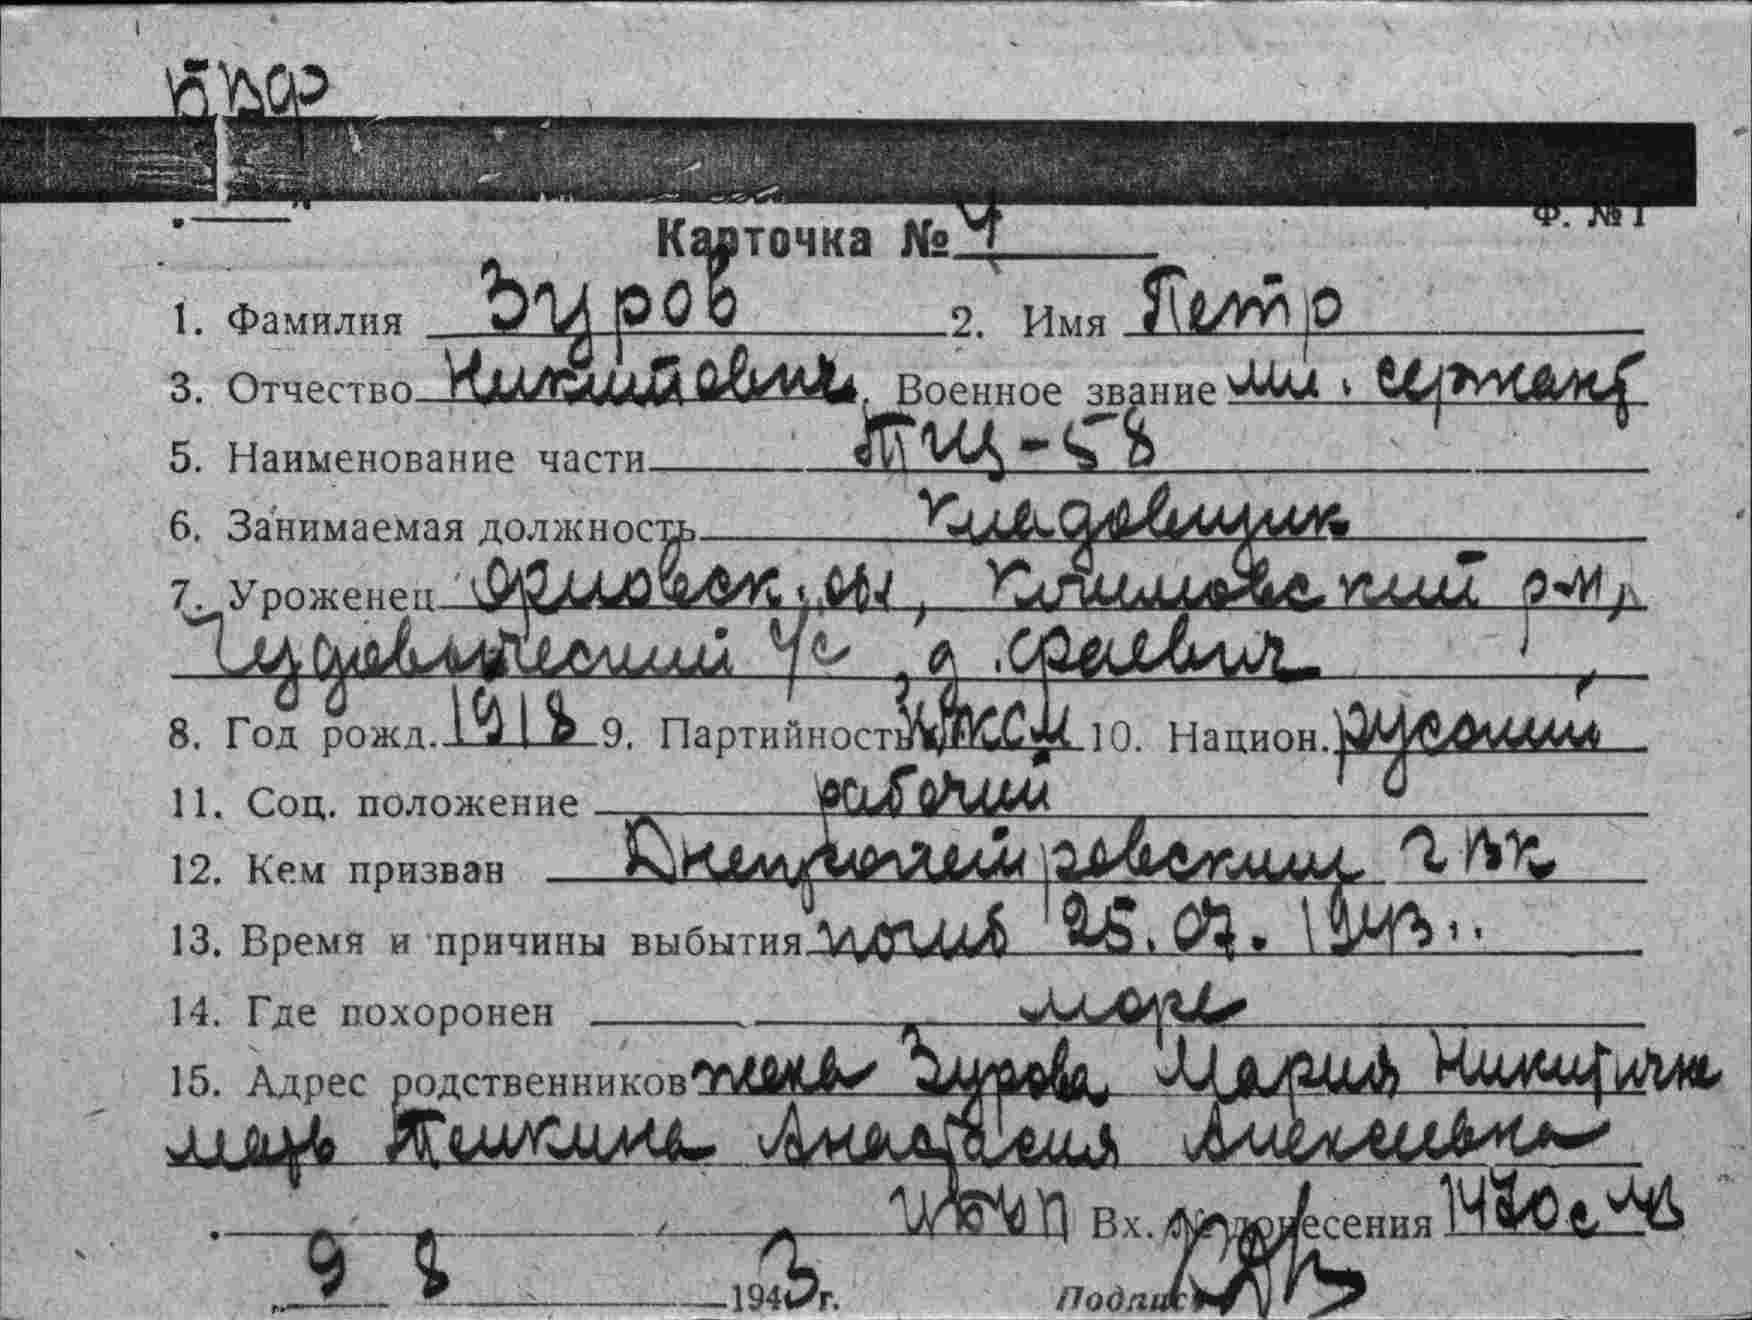 КВФ
Ф. № 1
Карточка № 4
1. Фамилия Зуров 2. Имя Петр
3. Отчество Никитович. Военное звание мл. сержант
5. Наименование части ТЩ-58
6. Занимаемая должность Кладовщик
7. Уроженец Орловск. обл, Климовский р-н,
с/с д.
8. Год рожд. 1918 9. Партийность ВЛКСМ 10. Национ. русский
11. Соц. положение рабочий
12. Кем призван Днепропетровским ГВК
13. Время и причины выбытия погиб 25.07.1943..
14. Где похоронен море
15. Адрес родственников жена Зурова Мария Никитична
мать Анастасия Алексеевна
Вх. № донесения 1470с
9 8 1943 г. Подпись